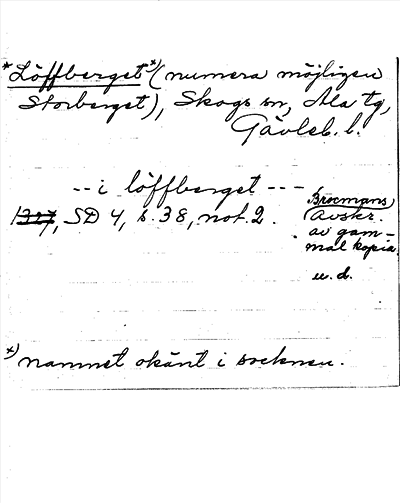 * Löffberget *) (numera möjligen
Storberget), Skogs sn, Ala tg,
Gävleb. l.
-- i löffberget ---
1327, SD 4, s. 38, not. 2.
Broemans
(avskr.
av gam-
mal kopia
u. d.
*) namnet okänt i socknen.